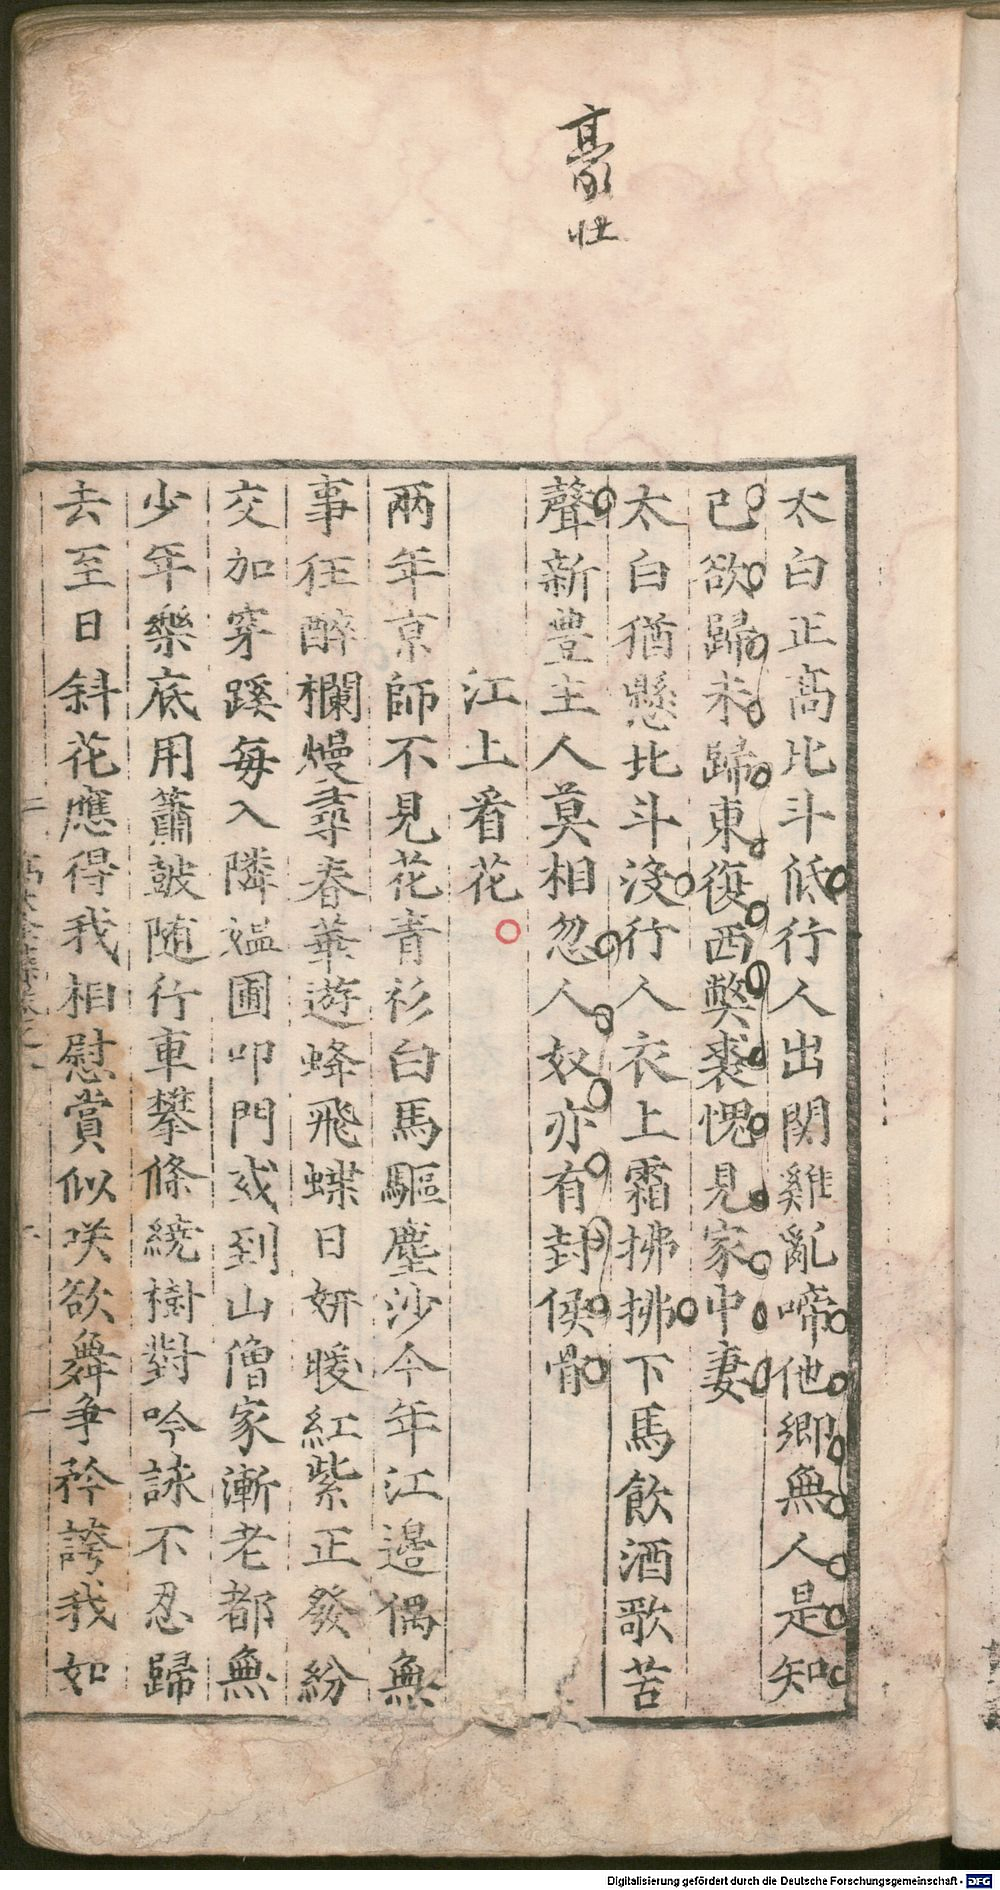 豪壯
太白正高比斗低行人出関雞亂啼他鄉無人是知
己欲歸未歸東復西獘裘愧見家中妻
太白猶懸比斗沒行人衣上霜拂拂下馬飲酒歌苦
聲新豊主人莫相忽人奴亦有封侯骨
江上看花
兩年京師不見花青衫白馬驅塵沙今年江邉偶無
事狂醉爛熳尋春華遊蜂飛蝶日妍暖紅紫正發紛
交加穿蹊每入隣媪圃叩門或到山僧家漸老都無
少年樂底用簫皷随行車攀條繞樹對吟詠不忍歸
去至日斜花應得我相慰賞似咲欲舞争矜誇我如
Digitalisierung gefördert durch die Deutsche Forschungsgemeinschaft - DFG